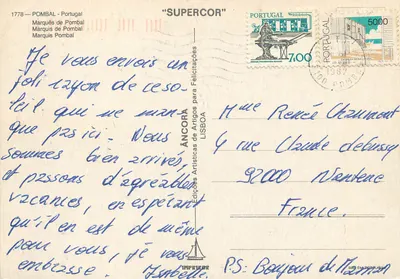 1778 — POMBAL - Portugal
Marquês de Pombal
Marquis de Pombal
Marquis Pombal
"SUPERCOR"
Je vous envois un
joli rayon de ce so-
leil qui ne man-
que pas ici. Nous
sommes bien arrivés,
et passons d'agréables
vacances, en espérant
qu'il en est de même
pour vous, je vous
embrasse. Isabelle
ÂNCORA
Edições Artísticas de Artigos para Felicitações
LISBOA
PORTUGAL
7.00
PORTUGAL
50.00
Mme René Chaumont
4 rue Claude debussy
92000 Nanterre
France.
P.S: Bonjour de Maman